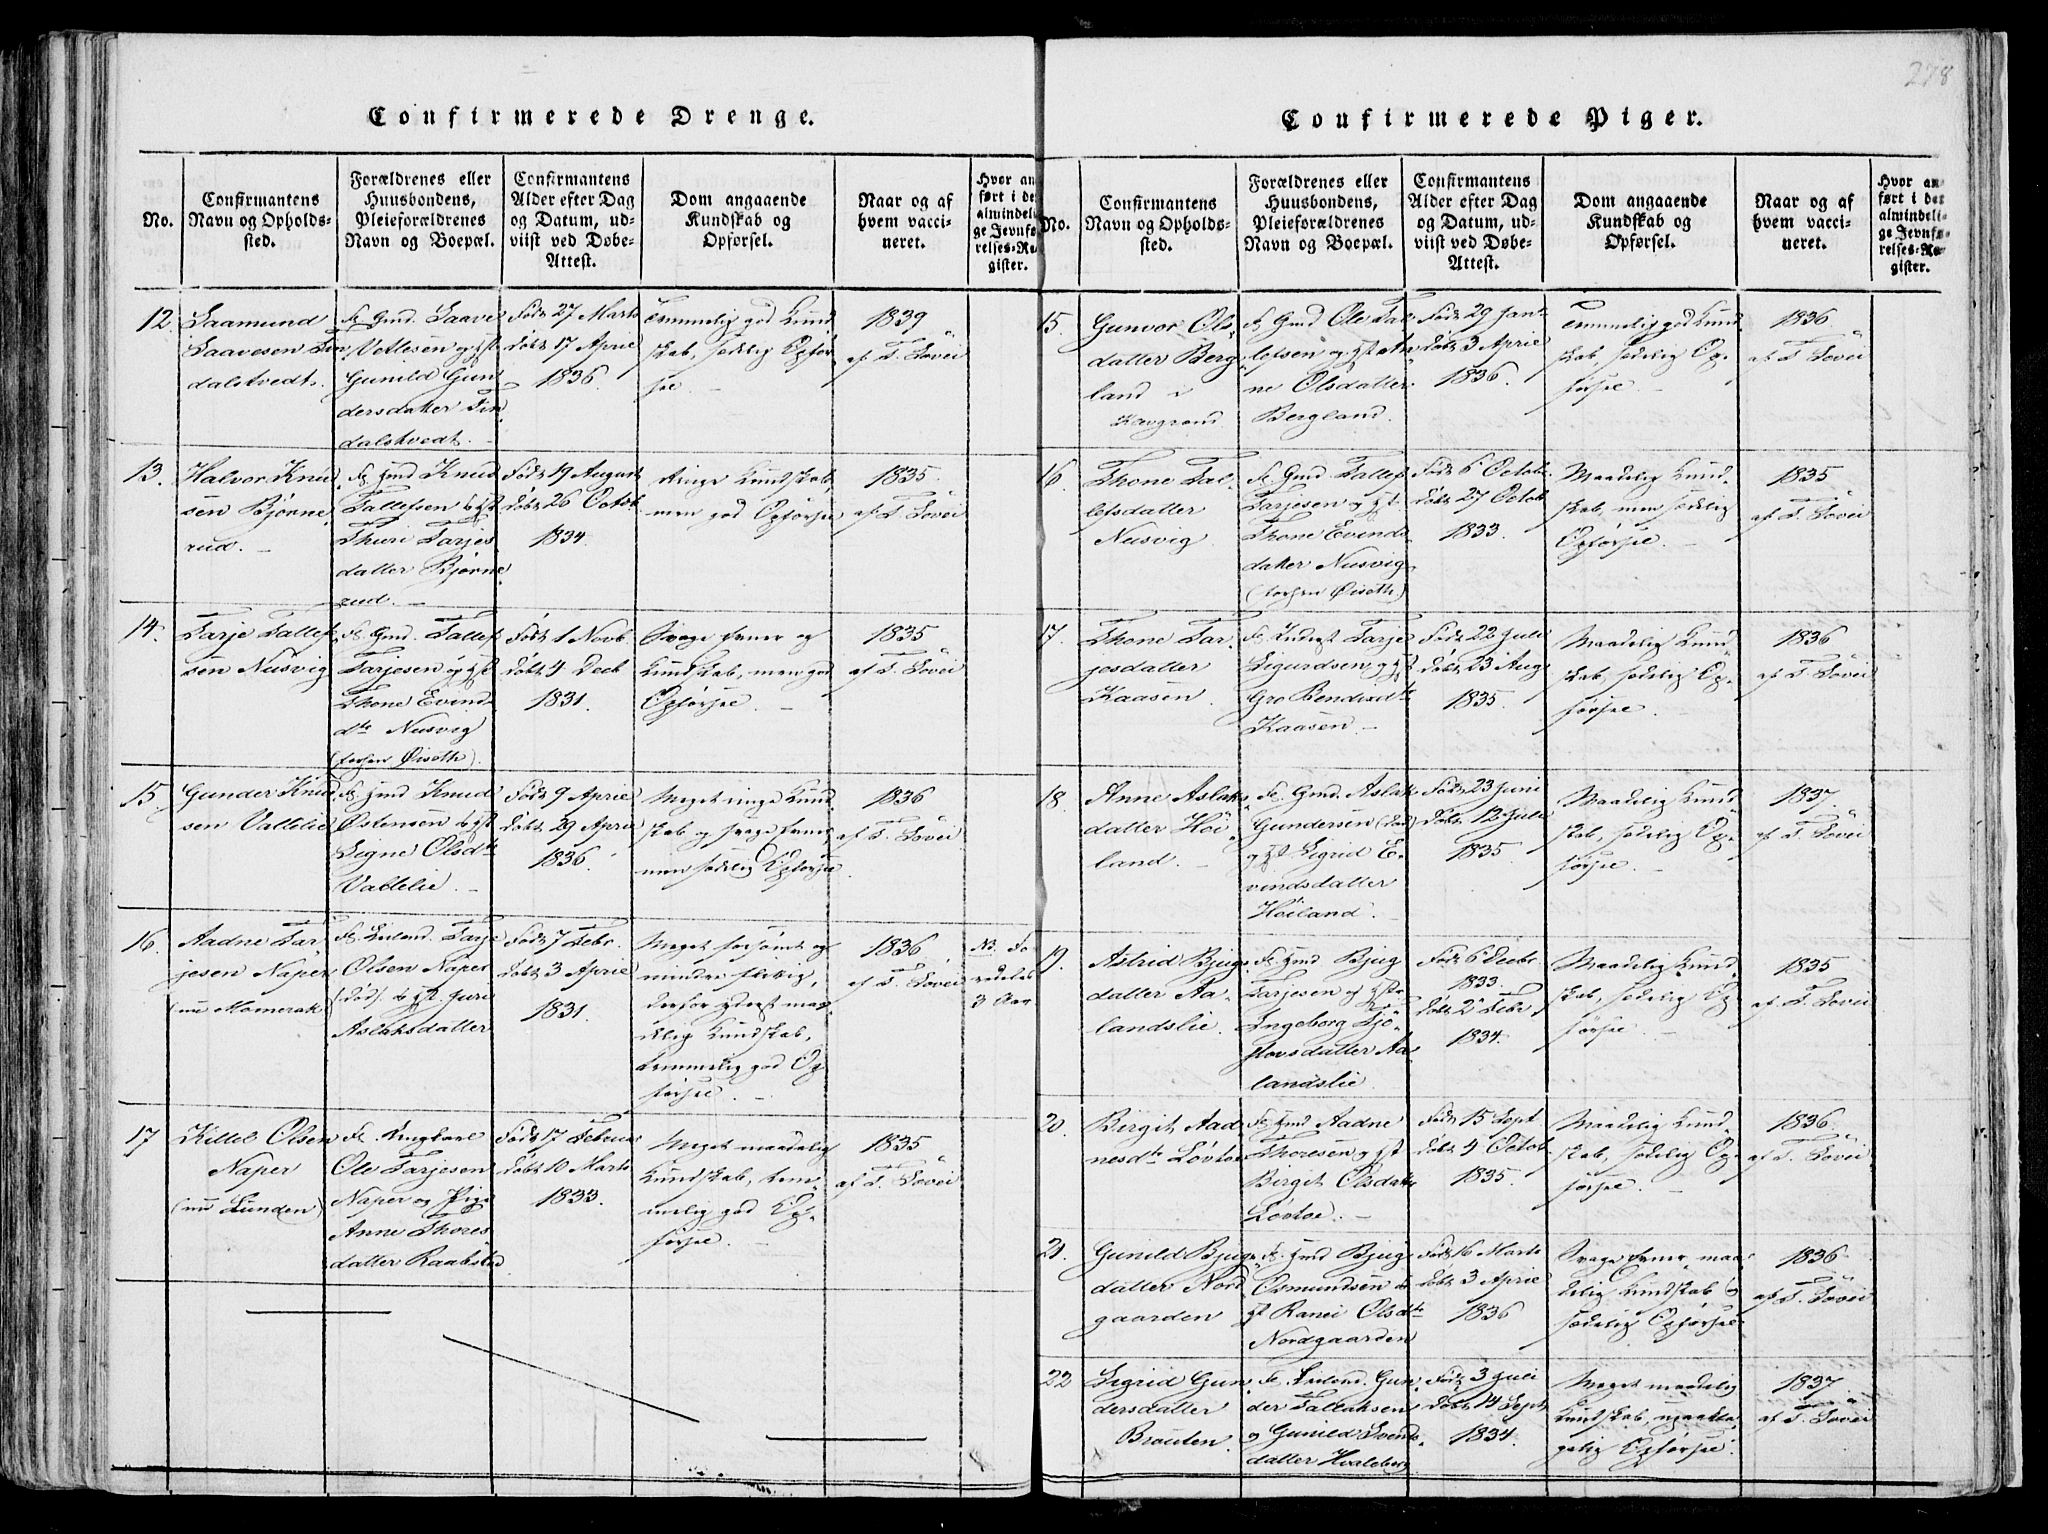 278
Confirmerede Drenge.
No.
Confirmantens
Navn og Opholds-
sted.
Forældrenes eller
Huusbondens,
Pleieforældrenes
Navn og Boepæl.
Confirmantens
Alder efter Dag
og Datum, ud-
viist ved Døbe-
Attest.
Dom angaaende
Kundskab og
Opførsel.
Naar og af
hvem vacci-
neret.
Hvor an
ført i de
almindeli
ge Jevnfø
relses-Re
gister.
12
Saamund
Saavesen Tin
dalstvedt.
F. Gmd. Saave
Vetlesen og Hst
Gunild Gun
dersdatter Tin
dalstvedt.
Født 27 Marts
døbt 17 April
1836
Temmelig god Kund
skab, sædelig Opfør-
sel.
1839
af T. Lövei
13.
Halvor Knud
sen Bjørne
rud.
F. Hmd Knud
Tallefsen & Hst
Thuri Tarjes
datter Bjørne
rud.
Født 19 August
døbt 26 Octob
1834
Ringe Kundskab,
men god Opførsel
1835
af T. Lövei
14.
Tarje Tallef
sen Nusvig
F. Gmd. Tallef
Tarjesen og Hst
Thone Evind
dtr Nusvig
(forhen Øiseth).
Født 1 Novb
døbt 4 Decb
1831
Svage Evner og
Kundskab, men god
Opførsel.
1835
af T. Lövei
15.
Gunder Knud
sen Vallelie
F. Hmd Knud
Østensen & Hst
Signe Olsdtr
Vallelie.
Født 9 April
døbt 29 April
1836
Meget ringe Kund
skab og svage Evner
men sædelig Opførsel
1836
af T. Lövei
16.
Aadne Tar
jesen Naper
(nu Momrak)
F. Leilend. Tarje
Olsen Naper
(død) & Hst. Guri
Aslaksdatter
Født 7 Febr.
døbt 3 April
1831
Meget forsømt og
mindre flittig,
derfor yderst maa
delig Kundskab,
temmelig god Op
førsel.
1836
af T. Lövei
NB. Fo
3 Aar
17
Kittel Olsen
Naper
(nu Lunden)
F. Ungkarl
Ole Tarjesen
Naper og Pige
Anne Thores
datter Raabstad
Født 17 Februar
døbt 10 Marts
1833.
Meget maadelig
Kundskab, tem-
melig god Op-
førsel.
1835
af T. Lövei
Confirmerede Piger.
No.
Confirmantens
Navn og Opholds-
sted.
Forældrenes eller
Huusbondens,
Pleieforældrenes
Navn og Boepæl.
Confirmantens
Alder efter Dag
og Datum, ud-
viist ved Døbe-
Attest.
Dom angaaende
Kundskab og
Opførsel.
Naar og af
hvem vacci-
neret.
Hvor an-
ført i det
almindeli-
ge Jevnfø-
relses-Re-
gister.
15.
Gunvor Ols-
datter Berg
land i
F. Gmd Ole Tal
lefsen og Hst An
ne Olsdatter
Bergland.
Født 29 Jan
døbt 3 April
1836.
Temmelig god Kund
skab, sædelig Op-
førsel.
1836
af T. Lövei
16.
Thone Tal-
lefsdatter
Nusvig
F. Gmd Tallef
Tarjesen og Hst
Thone Evinds
datter Nusvig
(forhen Øiseth.)
Født 6 Octobr
døbt 27 Octob
1833.
Maadelig Kund-
skab, men sædelig
Opførsel.
1835
af T. Lövei
17.
Thone Tar-
jesdatter
Kaasen
F. Indst Tarje
Sigurdsen og Hst
Gro Bendixdtr
Kaasen.
Født 22 Juli
døbt 23 Aug
1835.
Maadelig Kund-
skab, sædelig Op-
førsel.
1836
af T. Lövei
18.
Anne Aslaks
datter Höi
land.
F. Gmd. Aslak
Gundersen (død)
og Hst Sigrid E-
vindsdatter
Höiland.
Født 23 Juni
døbt 12 Juli
1835.
Maadelig Kund-
skab, sædelig Op-
førsel.
1837.
af T. Lövei
19.
Astrid Bjugs
datter Aa-
landslie.
F. Hmd Bjug
Tarjesen og Hst
Ingeborg Tjö
stovsdatter Aa-
landslie
Født 6 Decbr.
1833.
døbt 2 Febr.
1834.
Maadelig Kund-
skab, sædelig Op-
førsel.
1835
af T. Lövei
20.
Birgit Aad
nesdtr Lövtoe
F. Hmd Aadne
Thoresen og Hst
Birgit Olsdatter
Lövtoe.
Født 15 Sept.
døbt 4 Octob
1835.
Maadelig Kund-
skab, sædelig Op-
førsel.
1836.
af T. Lövei
21.
Gunild Bjugs
datter Nord
gaarden
F. Hmd Bjug
Osmundsen &
Hst Ranei Olsdtr
Nordgaarden
Født 16 Marts
døbt 3 April
1836
Svage Evner, maa-
delig Kundskab &
sædelig Opførsel
1836
af T. Lövei
22
Sigrid Gun
dersdatter
Brauten.
F. Leilend. Gun
der Tallaksen
og Gunild Svends
datter Hvaleberg.
Født 3 Juli
døbt 14 Sept
1834.
Meget maadelig
Kundskab, upaakla-
gelig Opførsel.
1837
af T. Lövei